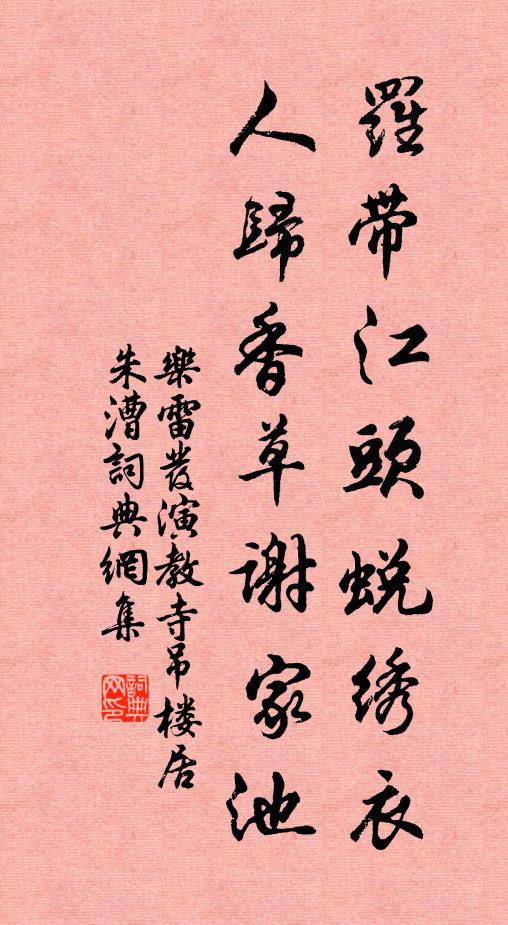 羅帶江頭蜕绣衣
人歸香草謝家池
樂雷發演教寺吊楼居
朱漕詞典網集
詞典网印